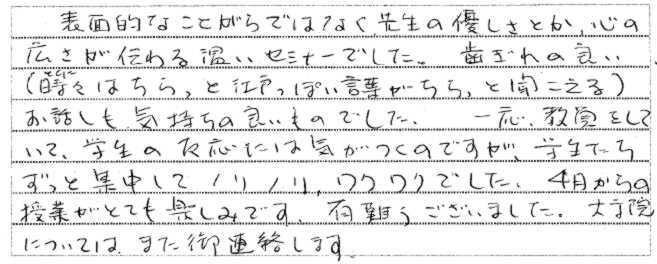 表面的なことがらではなく先生の優しさとか、心の
広さが伝わる温いセミナーでした。 歯ぎれの良い
(時々はちらっと江戸っぽい言葉がちらっと聞こえる)
お話しも気持ちの良いものでした。 一応、教員をして
いて、学生の反応には気がつくのですが、学生たち
ずっと集中してノリノリ、ワクワクでした。 4月からの
授業がとても楽しみです。有難うございました。大学院
については、また御連絡します。